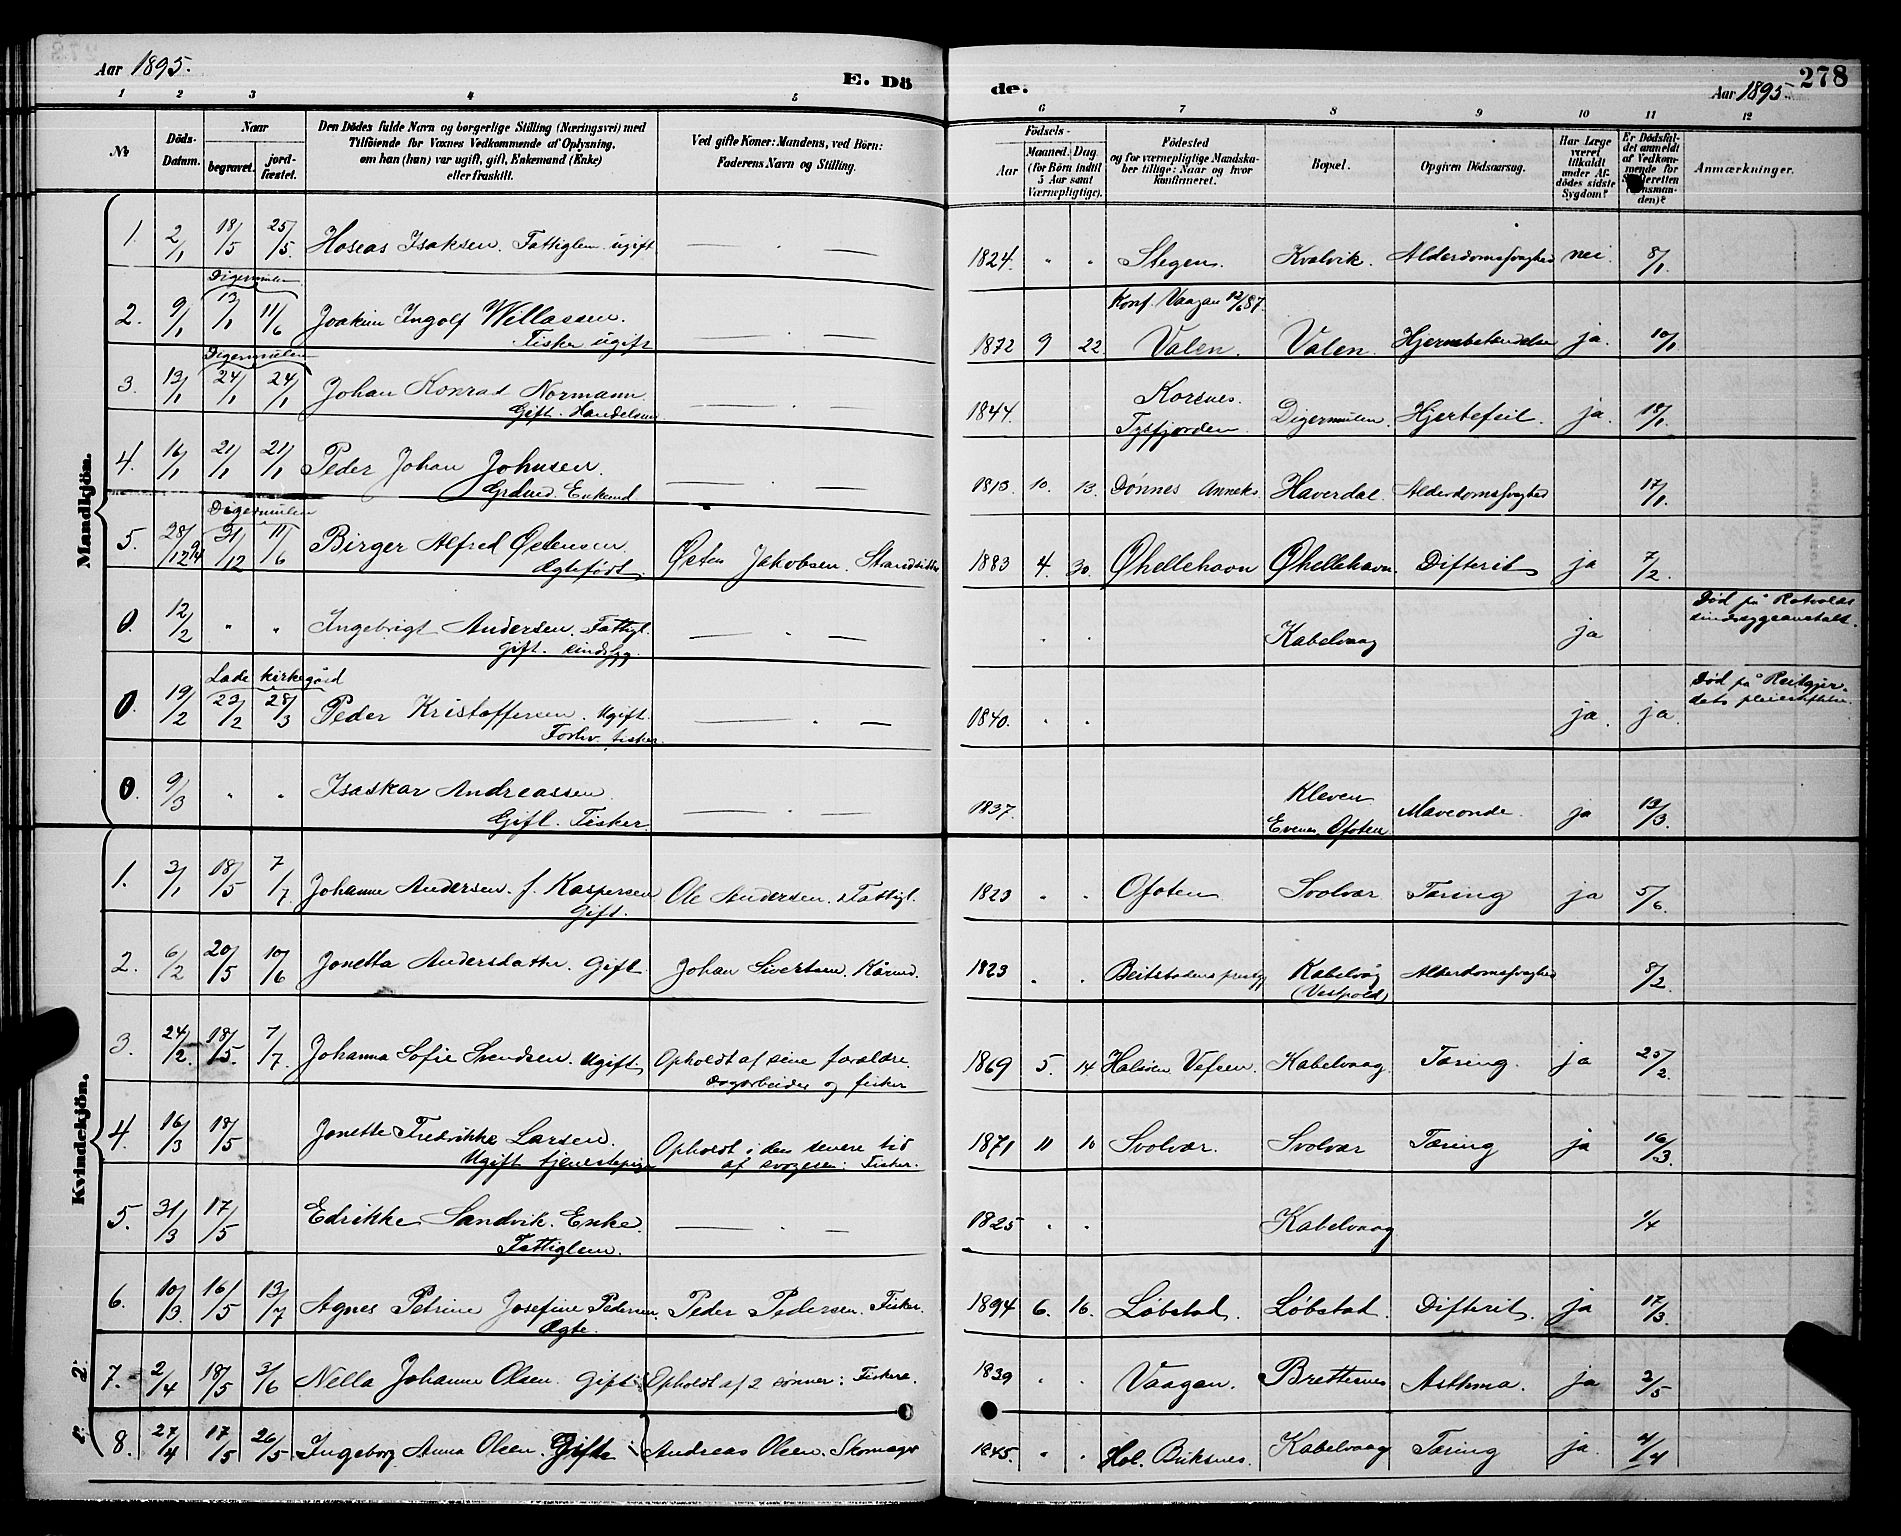 Aar 1895.
E. Dö
de.
Aar 1895.
278
1 2 3 4 5 6 7 8 9 10 11 12
№
Döds-Datum.
Naar
begravet.
jord-fæstet.
Den Dödes fulde Navn og borgerlige Stilling (Næringsvei) med
Tilföiende for Voxnes Vedkommende af Oplysning,
om han (hun) var ugift, gift, Enkemand (Enke)
eller fraskilt.
Ved gifte Koner: Mandens, ved Börn:
Faderens Navn og Stilling.
Födsels-
Aar
Maaned. Dag.
(for Börn indtil
5 Aar samt
Værnepligtige).
Födested
og for værnepligtige Mandska-
ber tillige: Naar og hvor
konfirmeret.
Bopæl.
Opgiven Dödsaarsag.
Har Læge
været
tilkaldt
under Af-
dödes sidste
Sygdom?
Er Dödsfal-
det anmeldt
af Vedkom-
mende for
Skifteretten
(Lensman-
den)?
Anmærkninger.
Mandkjön.
1. 2/1 18/5 25/5 Hoseas Isaksen. Fattiglem. ugift — . — 1824. " " Stegen. Kvalvik. Alderdomssvaghed nei. 8/1
Digermulen
Konf. Vaagan 12/6 87.
2. 9/1 13/1 11/6 Joakim Ingolf Willassen. — . — 1872 9 22. Valen. Valen. Hjernebetændelse ja. 10/1
Fisker ugift
Digermulen
3. 13/1 24/1 24/1 Johan Konrad Normann. — . — 1844. Korsnes. Digermulen. Hjertefeil. ja. 18/1
Gift. Handelsm. Tysfjorden
4. 16/1 21/1 21/1 Peder Johan Johnsen. — . — 1813. 10. 13. Dönnes Anneks Haverdal. Alderdomssvaghed 17/1
Grdmd. Enkemd
Digermulen
5. 28/12 94 31/12 11/6 Birger Alfred Østensen. Østen Jakobsen. Strandsitter 1883 4. 30. Øhellehavn Øhellehavn. Difterit ja 7/2
Ægtefødt.
0. 12/2 " " Ingebrigt Andersen. Fattigl. — . — " " Kabelvaag ja Död på Rotvolds
Gift. sindssyg. sindssygeanstalt.
Lade kirkegård
0. 19/2 23/2 28/3 Peder Kristoffersen. Ugift. — . — 1840. " " ja. ja. Död på Reitgjer-
Forhv. fisker. dets pleiestiftelse.
0. 9/3 " " Isaskar Andreassen. — . — 1837. Kleven Maveonde. ja 13/3
Gift. Fisker. Evenes Ofoten
Kvindekjön.
1. 3/1 18/5 7/7. Johanne Andersen. f. Kaspersen Ole Andersen. Fattigl. 1823 " " Ofoten Svolvær Tæring ja 5/6.
Gift.
2. 6/2 20/5 10/6 Jonetta Andersdatter. Gift. Johan Sivertsen. Kårmd. 1823 . . Beitstadens prestgj Kabelvåg Alderdomssvaghed 8/2.
(Vestpold)
3. 24/2. 18/5. 7/7. Johanna Sofie Svendsen. Ugift. Opholdt af sine forældre. 1869 5. 14 Halsøen Vefsen. Kabelvaag. Tæring. ja 25/2
Dagarbeider og fisker
4. 16/3 18/5 Jonette Fredrikke Larsen. Opholdt i den senere tid 1871 11 10 Svolvær. Svolvær Tæring ja 16/3.
Ugift tjenestepige af svogeren: Fisker.
5. 31/3 17/5 Edrikke Sandvik. Enke — . — 1825 " . Kabelvaag 1/4
Fattiglem.
6. 10/3. 16/5 13/7 Agnes Petrine Josefine Pedersen. Peder Pedersen. Fisker. 1894 6. 16. Løbstad. Løbstad. Difterit. ja 17/3.
Ægte.
7. 2/4 18/5 3/6 Nella Johanne Olsen. Gift: Opholdt af 2 sønner: Fiskere. 1839 " . Vaagan. Brettesnes Asthma. ja 2/5
8. 27/4 17/5 26/5 Ingeborg Anna Olsen. Gift Andreas Olsen. Skomager 1845. " . Hol. Buksnes. Kabelvaag Tæring ja.